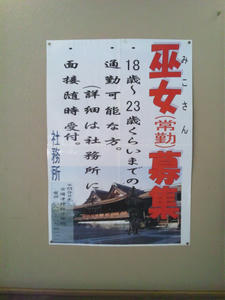 みこさん
巫女(常勤)募集
・18歳~23歳くらいまでの
・通勤可能な方。
(詳細は社務所に
・面接随時受付。
社務所